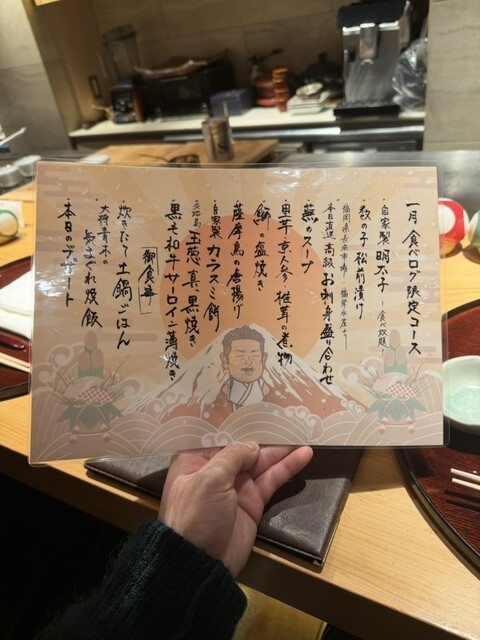 一月 食べログ限定コース
・自家製 明太子 ～食べ放題～
・数の子 松前漬け
福岡県長浜市場
本日直送 高級 お刺身盛り合わせ
・蕪のスープ
・里芋、京人参、椎茸の煮物
・鰤の塩焼き
・薩摩鳥の唐揚げ
・自家製 カラスミ餅
・淡路島 玉葱 真っ黒焼き
・黒毛和牛サーロイン薄焼き
「御食事」
・炊きたて土鍋ごはん
・大将 青木の気まぐれ焼飯
・本日のデザート